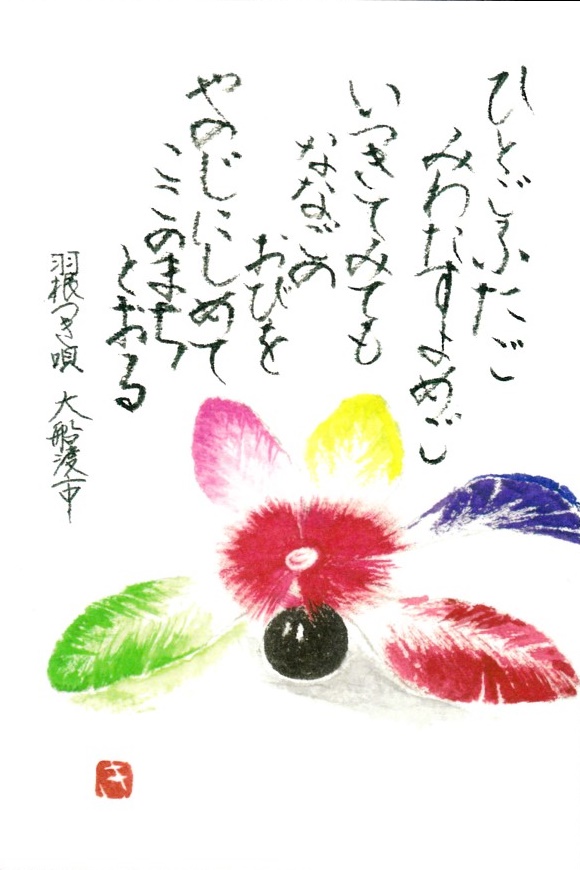 ひとごふたご
みわたすよめご
いつきてみても
ななごの
おびを
やのじにしめて
ここのまち
とおる
羽根つき唄 大船渡市
き